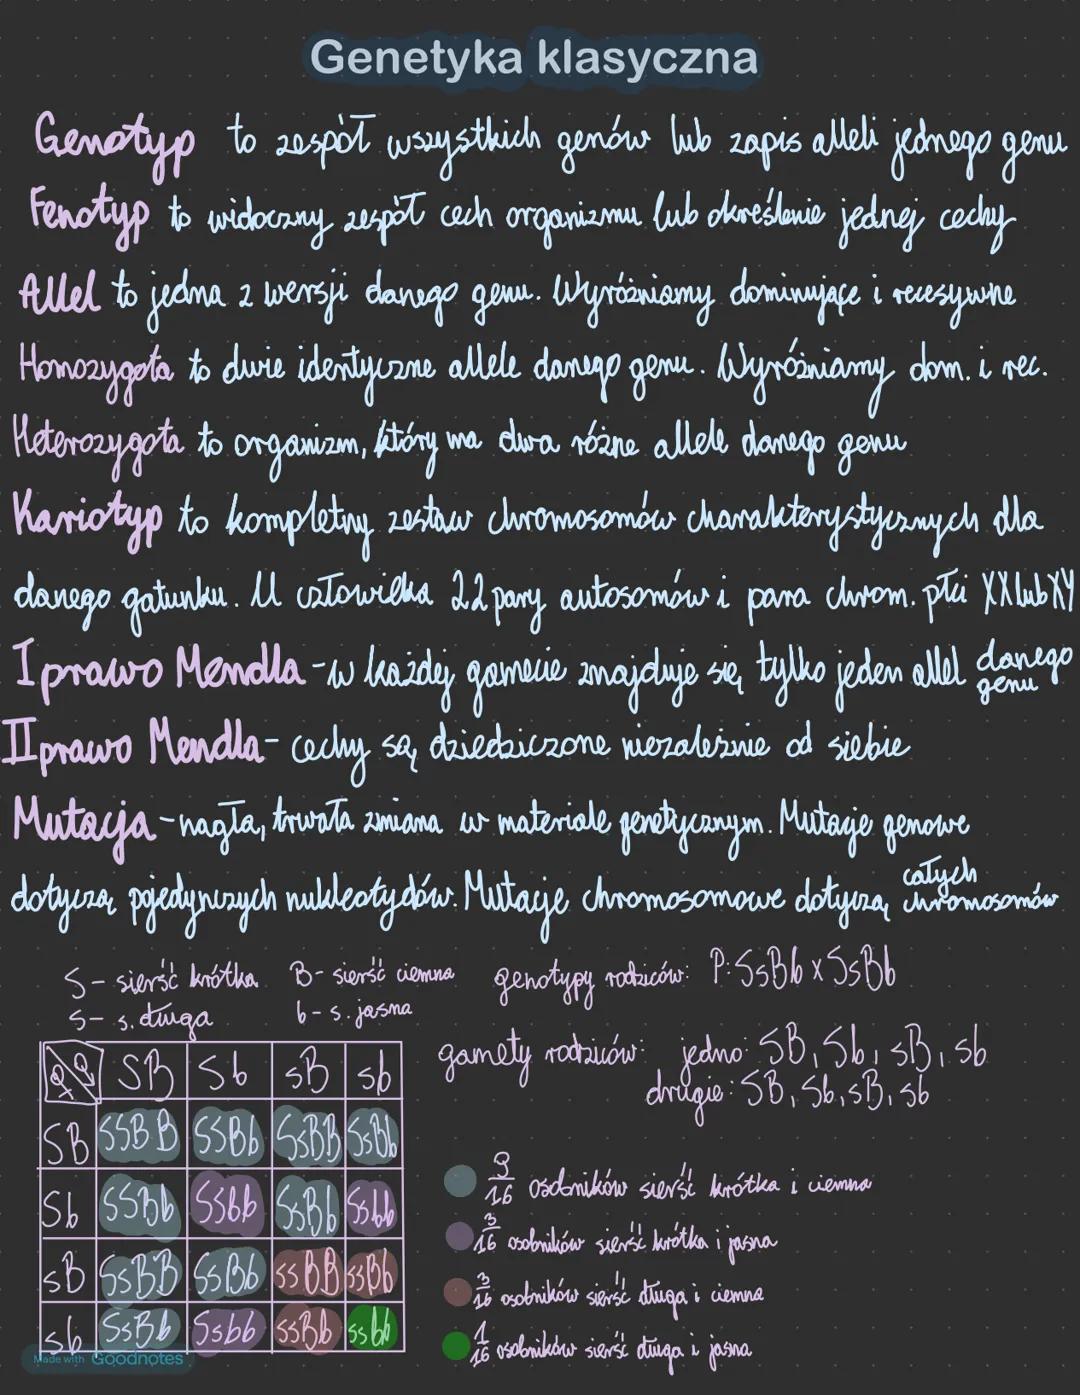 Genetyka klasyczna
Genotyp to zespół wszystkich genów lub zapis alleli jednego genu
Fenotyp to widoczny zespół cech organizmu lub określenie jednej cechy
Allel to jedna z wersji danego genu. Wyróżniamy dominujące i recesywne
Homozygota to dwie identyczne allele danego genu. Wyróżniamy dom. i rec.
Heterozygota to organizm, który ma dwa różne allele danego genu
Kariotyp to kompletny zestaw chromosomów charakterystycznych dla
danego gatunku. U człowieka 22 pary autosomów i para chrom. płci XX lub XY
I prawo Mendla - w każdej gamecie znajduje się tylko jeden allel danego genu
II prawo Mendla - cechy są dziedziczone niezależnie od siebie
Mutacja - nagła, trwała zmiana w materiale genetycznym. Mutacje genowe
dotyczą pojedynczych nukleotydów. Mutacje chromosomowe dotyczą całych chromosomów
S - sierść krótka B - sierść ciemna genotypy rodziców: P: SsBb x SsBb
s - s. długa b - s. jasna
gamety rodziców: jedno: SB, Sb, sB, sb
drugie: SB, Sb, sB, sb
♀ ♂ SB Sb sB sb
SB SSBB SSBb SsBB SsBb
Sb SSBb SSbb SsBb Ssbb
sB SsBB SsBb ssBB ssBb
sb SsBb Ssbb ssBb ssbb
9/16 osobników sierść krótka i ciemna
3/16 osobników sierść krótka i jasna
3/16 osobników sierść długa i ciemna
1/16 osobników sierść długa i jasna
Made with Goodnotes